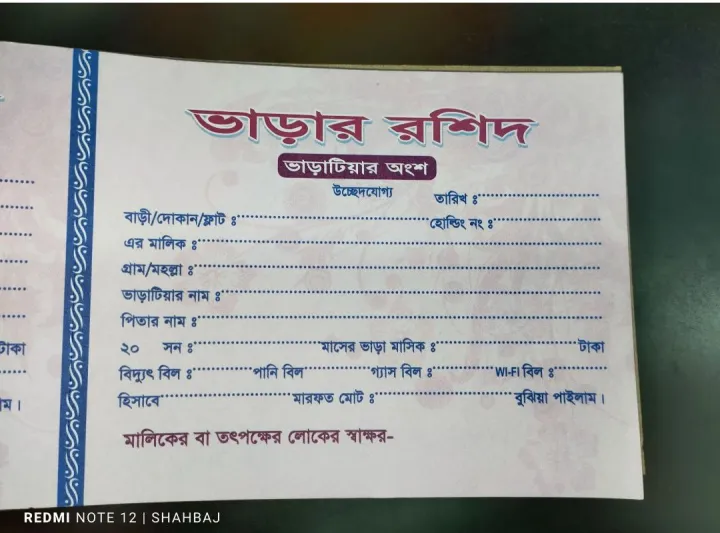 ভাড়ার রশিদ
ভাড়াটিয়ার অংশ
উচ্ছেদযোগ্য
তারিখ ঃ
বাড়ী/দোকান/ফ্লাট ঃ হোল্ডিং নং ঃ
এর মালিক ঃ
গ্রাম/মহল্লা ঃ
ভাড়াটিয়ার নাম ঃ
পিতার নাম ঃ
২০ সন ঃ মাসের ভাড়া মাসিক ঃ টাকা
বিদ্যুৎ বিল ঃ পানি বিল গ্যাস বিল ঃ WI-FI বিল ঃ
হিসাবে মারফত মোট ঃ বুঝিয়া পাইলাম।
মালিকের বা তৎপক্ষের লোকের স্বাক্ষর-
টাকা
REDMI NOTE 12 | SHAHBAJ